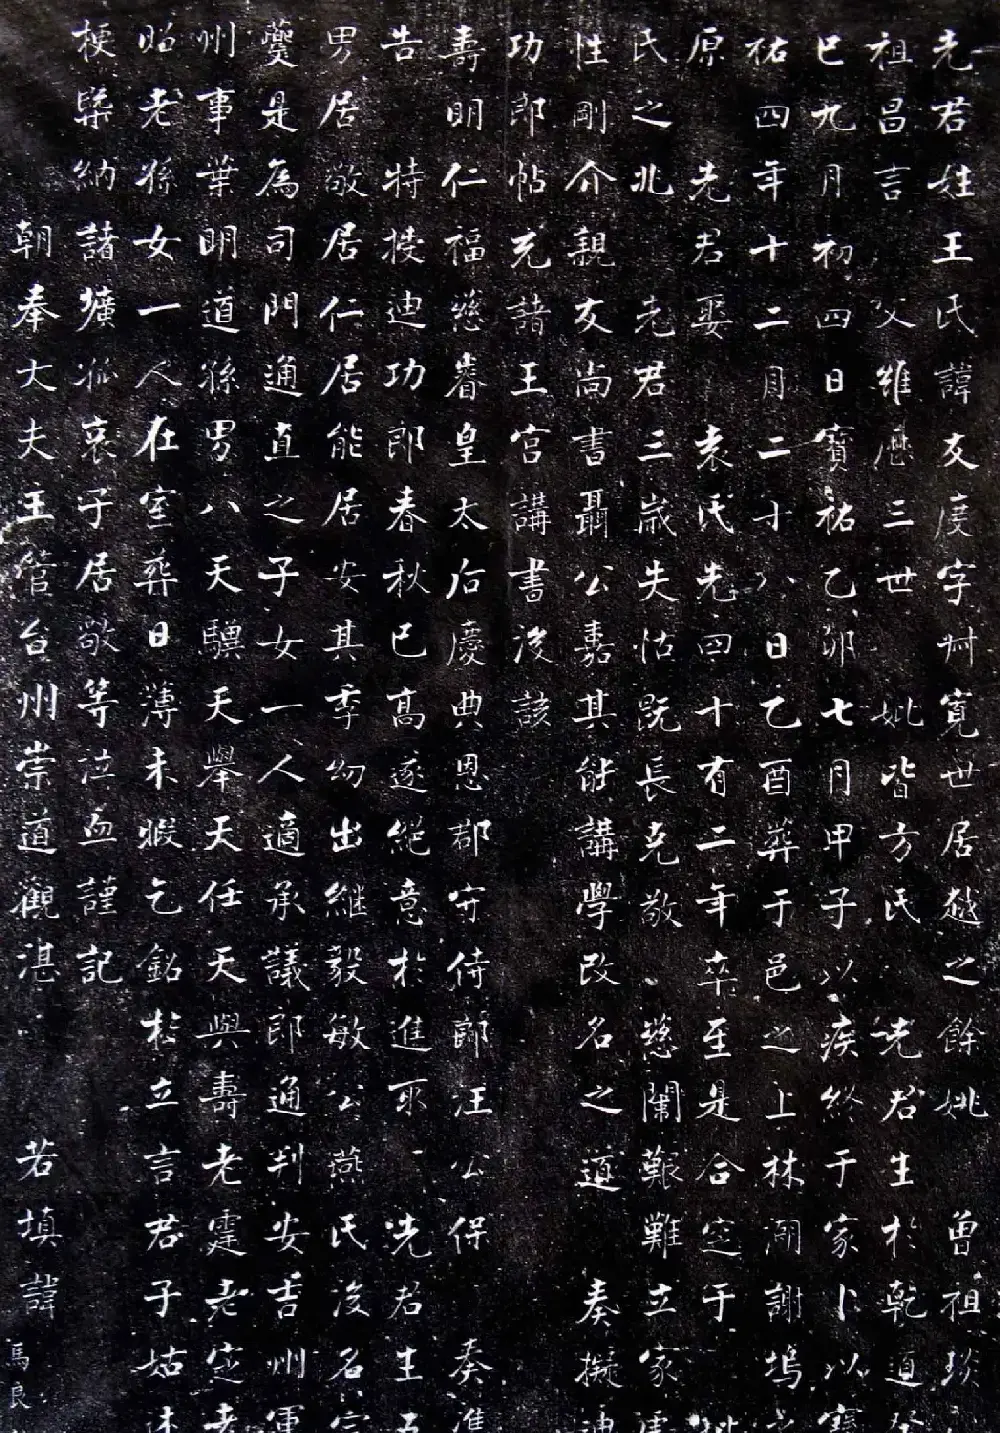 先君姓王氏諱友度字㪷寬世居越之餘姚 曾祖琰
祖昌言 父維應三世 妣皆方氏 先君生於乾道癸
巳九月初四日寶祐乙卯七月甲子以疾終于家卜以寶
祐四年十二月二十八日乙酉葬于邑之上林湖謝塢之
原 先君娶 袁氏先四十有二年卒至是合窆于
氏之北 先君三歲失怙既長克敬 慈闈艱難立家
性剛介親友尚書聶公嘉其能講學改名之道 奏擬迪
功郎帖充諸王宮講書後該
壽明仁福慈睿皇太后慶典恩郡守侍郎汪公保 奏准
告 特授迪功郎春秋已高遂絕意於進取 先君生五
男居敬居仁居能居安其季幼出繼毅敏公燕氏後名
夔是為司門通直之子女一人適承議郎通判安吉州軍
州事葉明道孫男八天驥天舉天任天與壽老霆老定老
昭老孫女一人在室葬日薄未暇乞銘於立言君子姑述
梗槩納諸壙孤哀子居敬等泣血謹記
朝奉大夫主管台州崇道觀湛 若填諱
馬良